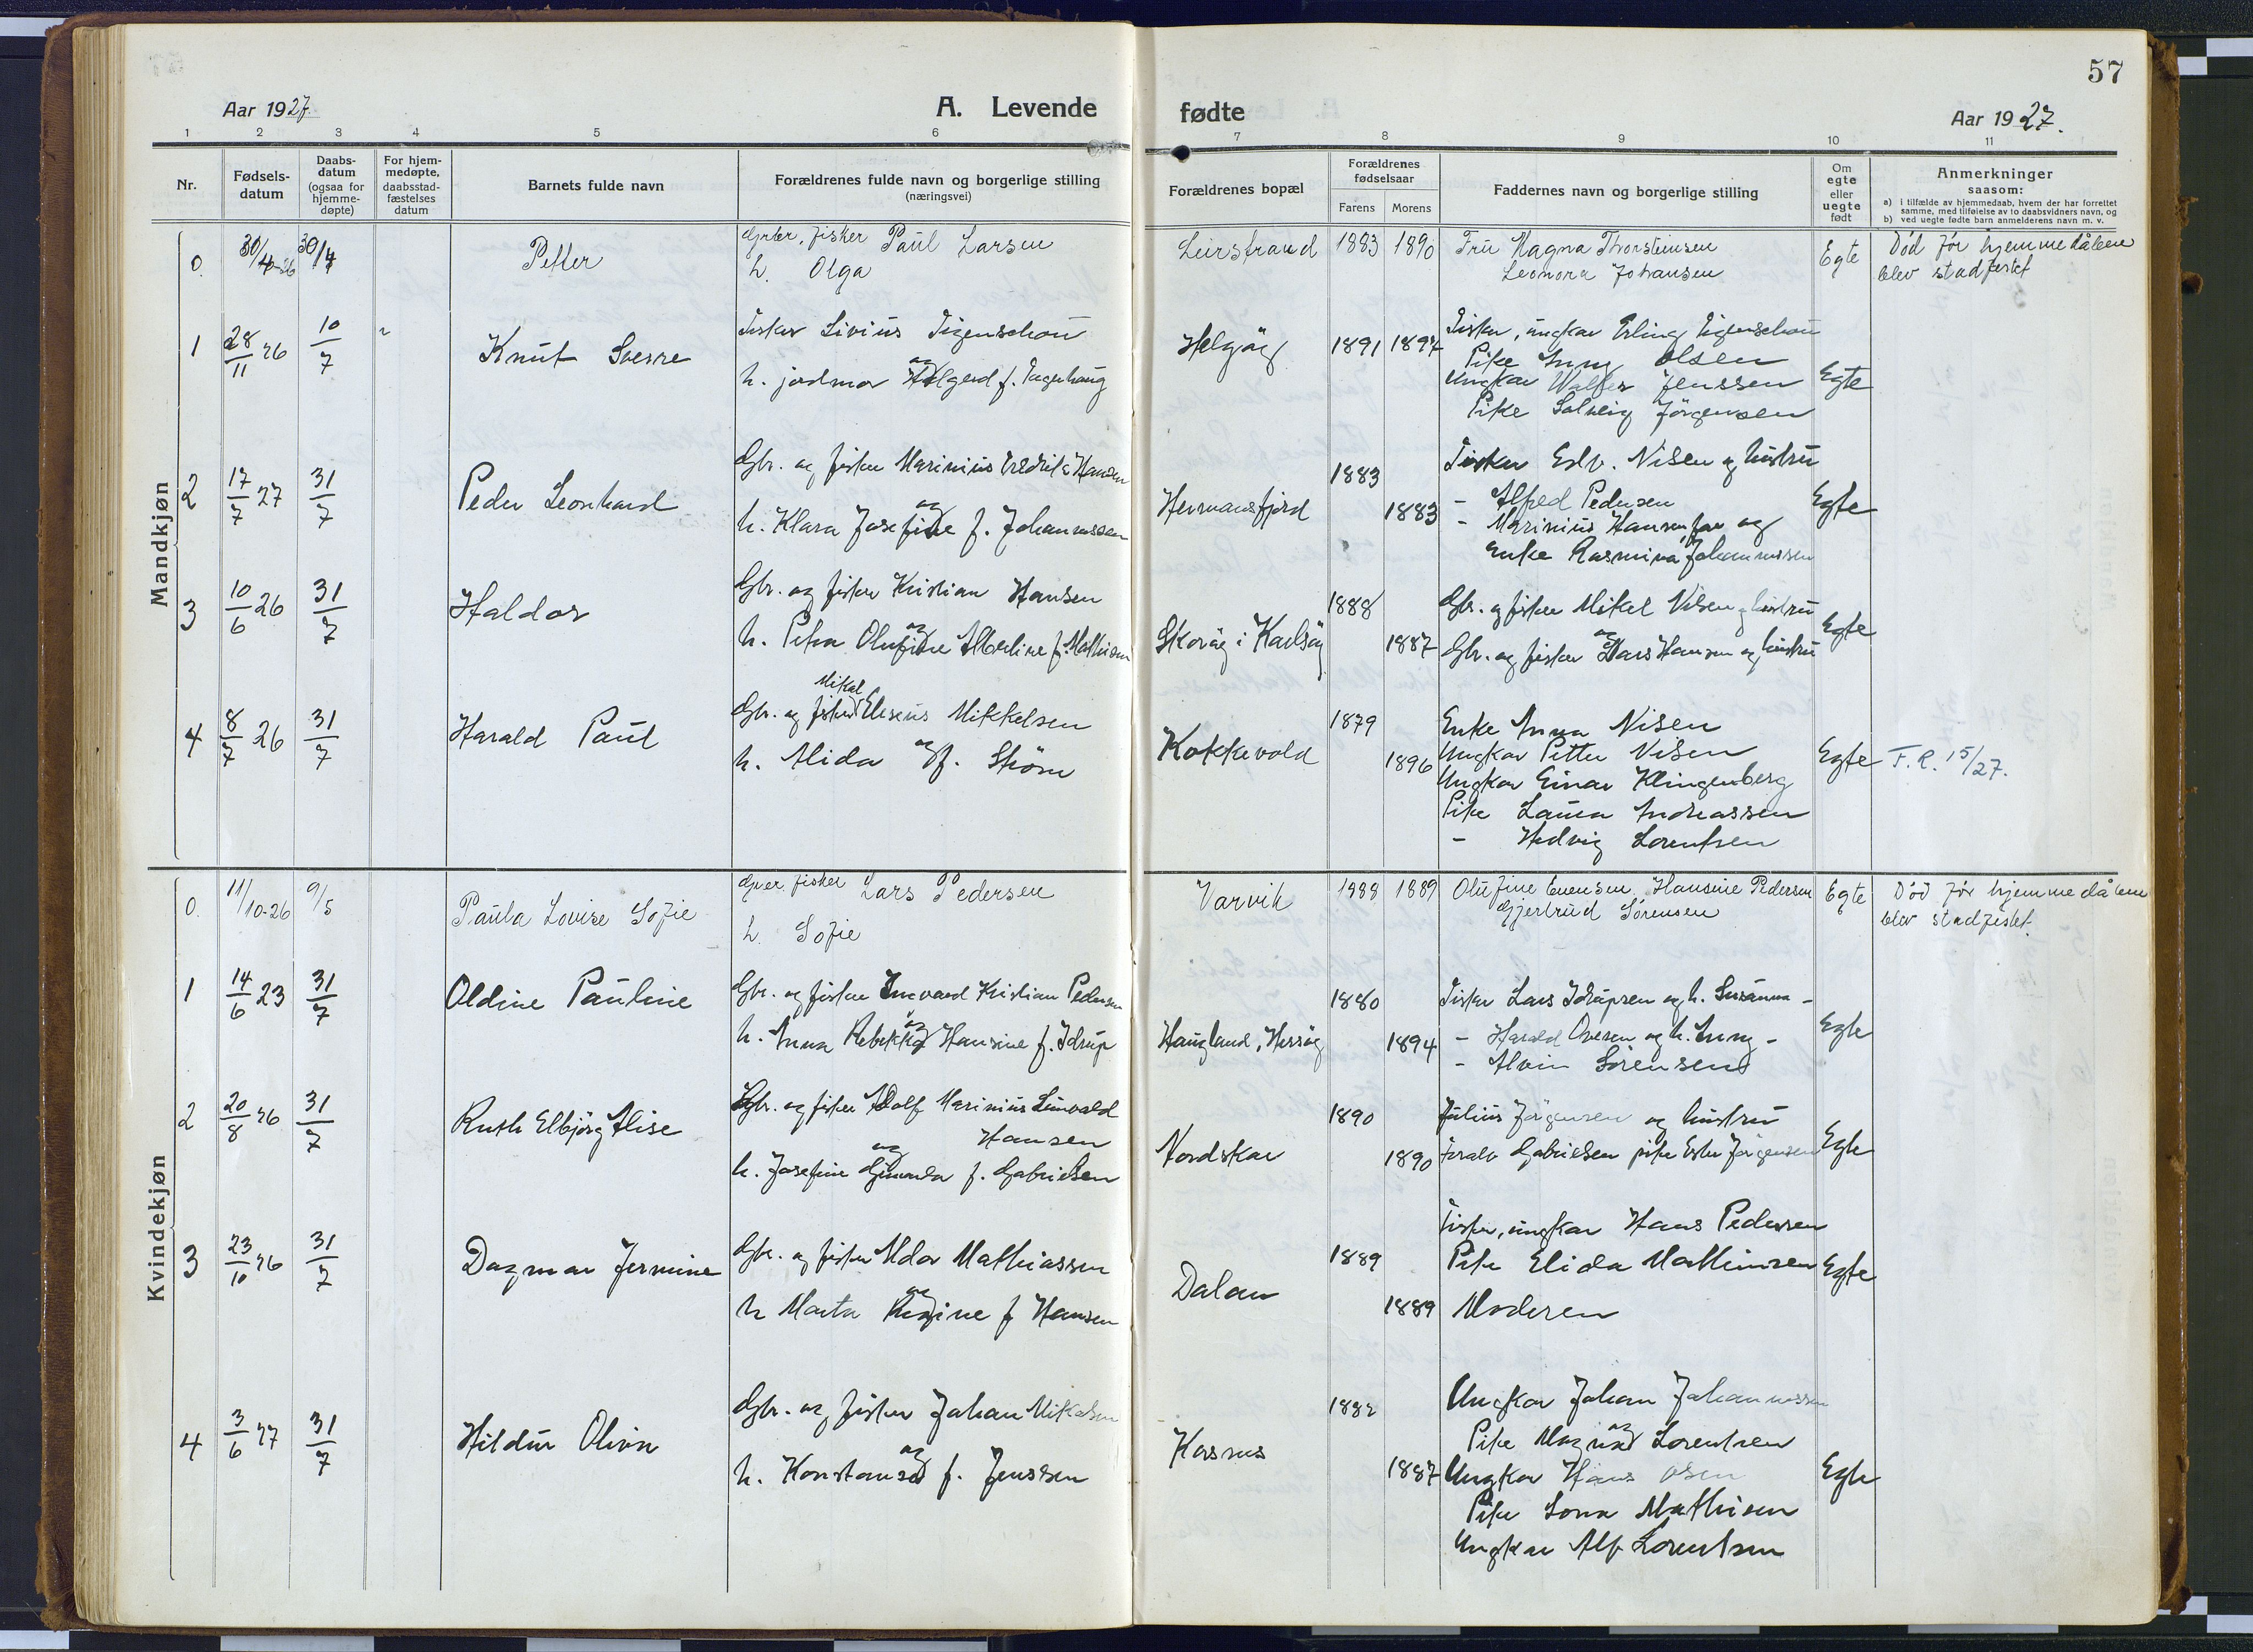 57
Aar 1927.
A. Levende
fødte
Aar 1927.
1 2 3 4 5 6 7 8 9 10 11
Nr.
Fødsels-
datum
Daabs-
datum
(ogsaa for
hjemme-
døpte)
For hjem-
medøpte,
daabsstad-
fæstelses
datum
Barnets fulde navn
Forældrenes fulde navn og borgerlige stilling
(næringsvei)
Forældrenes bopæl
Forældrenes
fødselsaar
Farens Morens
Faddernes navn og borgerlige stilling
Om
egte
eller
uegte
født
Anmerkninger
saasom:
a) i tilfælde av hjemmedaab, hvem der har forrettet
samme, med tilføielse av to daabsvidners navn, og
b) ved uegte fødte barn anmelderens navn m. v.
Mandkjøn
0. 30/4-26 30/4 Petter
fisker Paul Larsen
h. Olga
Leirstrand 1883 1890
Fru Magna Thorsteinsen
Leonora Johansen
Egte
Död för hjemmedåben
blev stadfestet
1 28/11 26 10/7 Knut Sverre
Fisker Livius Figenschou
og
h. jordmor f.
Helgöy 1891 1894
Fisker, ungkar Erling Figenschou
Pike Inny Olsen
Ungkar Jenssen
Pike Solveig Jörgensen
Egte
2 17/7 27 31/7 Peder Leonhard
Gbr. og fisker Marinius Hansen
og
h. Klara Josefine f. Johannessen
Hermansfjord 1883 1883
Fisker Edv. Nilsen og hustru
- Alfred Pedersen
- Marinius Hansen, far og
Enke Rasmina Johannessen
Egte
3 10/6 26 31/7 Haldor
Gbr. og fisker Kristian Hansen
og
h. Petra Olufine Albertine f. Mathisen
Skoröy i Karlsöy 1888 1887
Gbr. og fisker Mikal Nilsen og hustru
og
Gbr. og fisker Lars Hansen og hustru
Egte
4 8/7 26 31/7 Harald Paul
Mikal
Gbr. og fisker Eliseus Mikkelsen
og
h. Alida f. Ström
Kokkevold 1879 1896
Enke Anna Nilsen
Ungkar Petter Nilsen
Ungkar Einar Klingenberg
Pike Laura Andreassen
- Hedvig Lorentsen
Egte
F.R. 15/27.
Kvindekjøn
0. 11/10-26 9/5 Paula Lovise Sofie
fisker Lars Pedersen
h. Sofie
Varvik 1888 1889
Olufine Evensen. Hansine Pedersen
Gjertrud Sörensen
Egte
Död för hjemmedåben
blev stadfestet.
1 14/6 23 31/7 Oldine Pauline
Gbr. og fisker Ingvard Kristian Pedersen
og
h. Anna Rebekka Hansine f. Idrup
Haugland, Hersöy 1880 1894
Fisker Lars Idrupsen og h. Susanna -
- Harald Ovesen og h. Inny -
- Alvin Sörensen
Egte
2 20/8 26 31/7 Ruth Elbjörg Alise
Gbr. og fisker Adolf Marinius
Hansen
og
h. Josefine f. Gabrielsen
Nordskar 1890 1890
Julius Jörgensen og hustru
Toralv Gabrielsen pike Ester Jörgensen
Egte
3 23/10 26 31/7 Dagmar Jermine
Gbr. og fisker Aldor Mathiassen
og
h Marta Regine f Hansen
Dalan 1889 1889
Fisker, ungkar Hans Pedersen
Pike Elida Mathinsen
Moderen
Egte
4 3/6 27 31/7 Hildur Olivia
Gbr. og fisker Johan Mikalsen
og
h. Konstanse f. Jenssen
Karsnes 1882 1887
Ungkar Johan Johannessen
og
Pike Magna Lorentsen
Ungkar Hans Olsen
Pike Lona Mathisen
Ungkar Alf Lorentsen
Egte